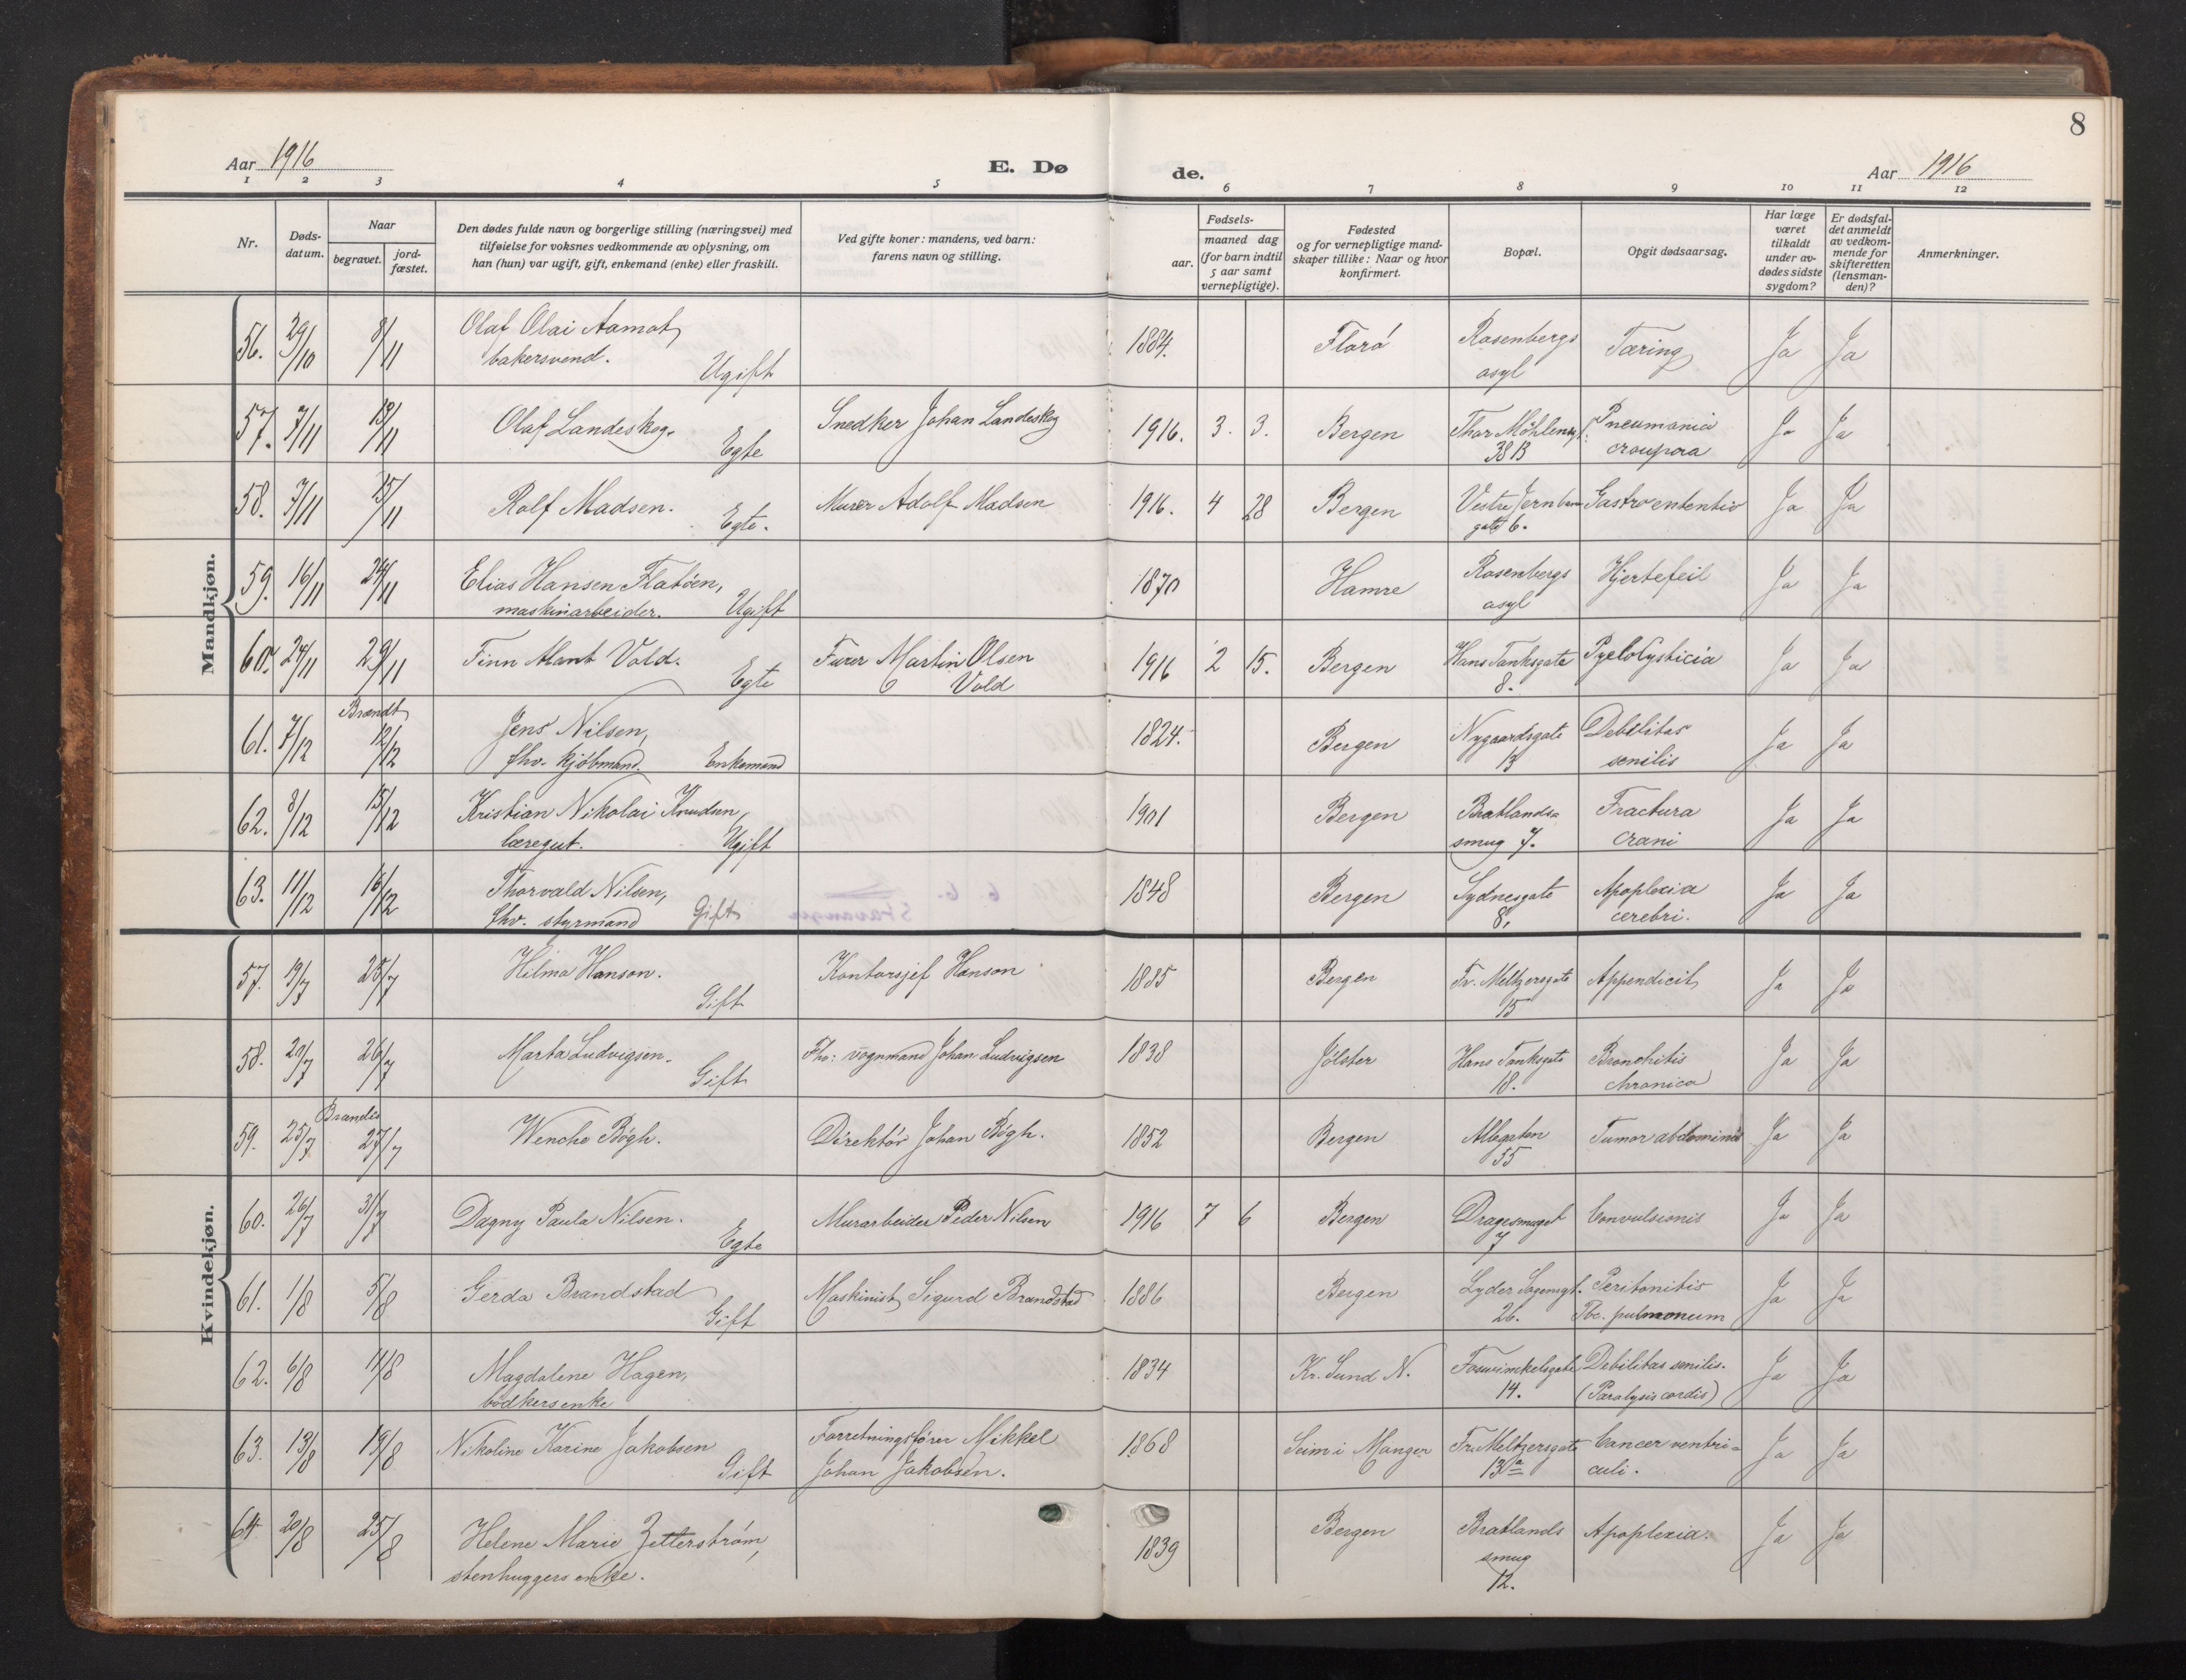 8
Aar 1916 E. Dø de. Aar 1916
1 2 3 4 5 6 7 8 9 10 11 12
Nr.
Døds-
datum.
Naar
begravet.
jord-
fæstet.
Den dødes fulde navn og borgerlige stilling (næringsvei) med
tilføielse for voksnes vedkommende av oplysning, om
han (hun) var ugift, gift, enkemand (enke) eller fraskilt.
Ved gifte koner: mandens, ved barn:
farens navn og stilling.
Fødsels-
aar.
maaned dag
(for barn indtil
5 aar samt
vernepligtige).
Fødested
og for vernepligtige mand-
skaper tillike: Naar og hvor
konfirmert.
Bopæl.
Opgit dødsaarsag.
Har læge
været
tilkaldt
under av-
dødes sidste
sygdom?
Er dødsfal-
det anmeldt
av vedkom-
mende for
skifteretten
(lensman-
den)?
Anmerkninger.
Mandkjøn.
56. 29/10 8/11 Olaf Olai Aamot 1884. Florø Rosenbergs Tæring Ja Ja
bakersvend. Ugift asyl
57. 7/11 13/11 Olaf Landeskog. Snedker Johan Landeskog 1916. 3. 3. Bergen Thor Møhlensgt. Pneumonia Ja Ja
Egte 38 B crouposa
58. 7/11 15/11 Rolf Madsen. Murer Adolf Madsen 1916. 4 28 Bergen Vestre Jernbane Ja Ja
Egte. gate 6.
59. 16/11 24/11 Elias Hansen Flatøen, 1870 Hamre Rosenbergs Hjertefeil Ja Ja
maskinarbeider. Ugift asyl
60. 24/11 29/11 Finn Vold. Furer Martin Olsen 1916 2 15. Bergen Hans Tanksgate Ja Ja
Egte Vold 8.
Brændt
61. 7/12 12/12 Jens Nilsen, 1824. Bergen Nygaardsgate Debilitas Ja Ja
fhv. kjøbmand. Enkemand 13 senilis
62. 8/12 15/12 Kristian Nikolai Knudsen, 1901 Bergen Bratlands- Fractura Ja Ja
læregut. Ugift smug 7. crani
63. 11/12 16/12 Thorvald Nilsen, 1848 Bergen Sydnesgate Apoplexia Ja Ja
fhv. styrmand Gift 8. cerebri.
Kvindekjøn.
57. 19/7 25/7 Hilma Hanson. Kontorsjef Hanson 1885 Bergen Fr. Meltzersgate Appendicit Ja Ja
Gift 15
58. 20/7 26/7 Marta Ludvigsen. Fhv: vognmand Johan Ludvigsen 1838 Jølster Hans Tanksgate Bronchitis Ja Ja
Gift 18. chronica
59. 25/7 27/7 Wenche Bøgh. Direktør Johan Bøgh. 1852 Bergen Allégaten Tumor abdominis Ja Ja
55
60. 26/7 31/7 Dagny Paula Nilsen. Murarbeider Peder Nilsen 1916 7 6 Bergen Dragesmuget Convulsionis Ja Ja
Egte 7
61. 1/8 5/8 Gerda Brandstad Maskinist Sigurd Brandstad 1886 Bergen Lyder Sagensgt. Peritonitis Ja Ja
Gift 26. Tbc. pulmonum
62. 6/8 11/8 Magdalene Hagen, 1834 Kr. Sund N. Fosswinckelsgate Debilitas senilis. Ja Ja
bødkersenke 14. (Paralysis cordis)
63. 13/8 19/8 Nikoline Karine Jakobsen Forretningsfører Mikkel 1868 Seim i Manger Fr. Meltzersgate Cancer ventri- Ja Ja
Gift Johan Jakobsen. 13a culi.
64. 20/8 25/8 Helene Marie Zetterstrøm, 1839 Bergen Bratlands Apoplexia. Ja Ja
stenhuggersenke. smug
12.